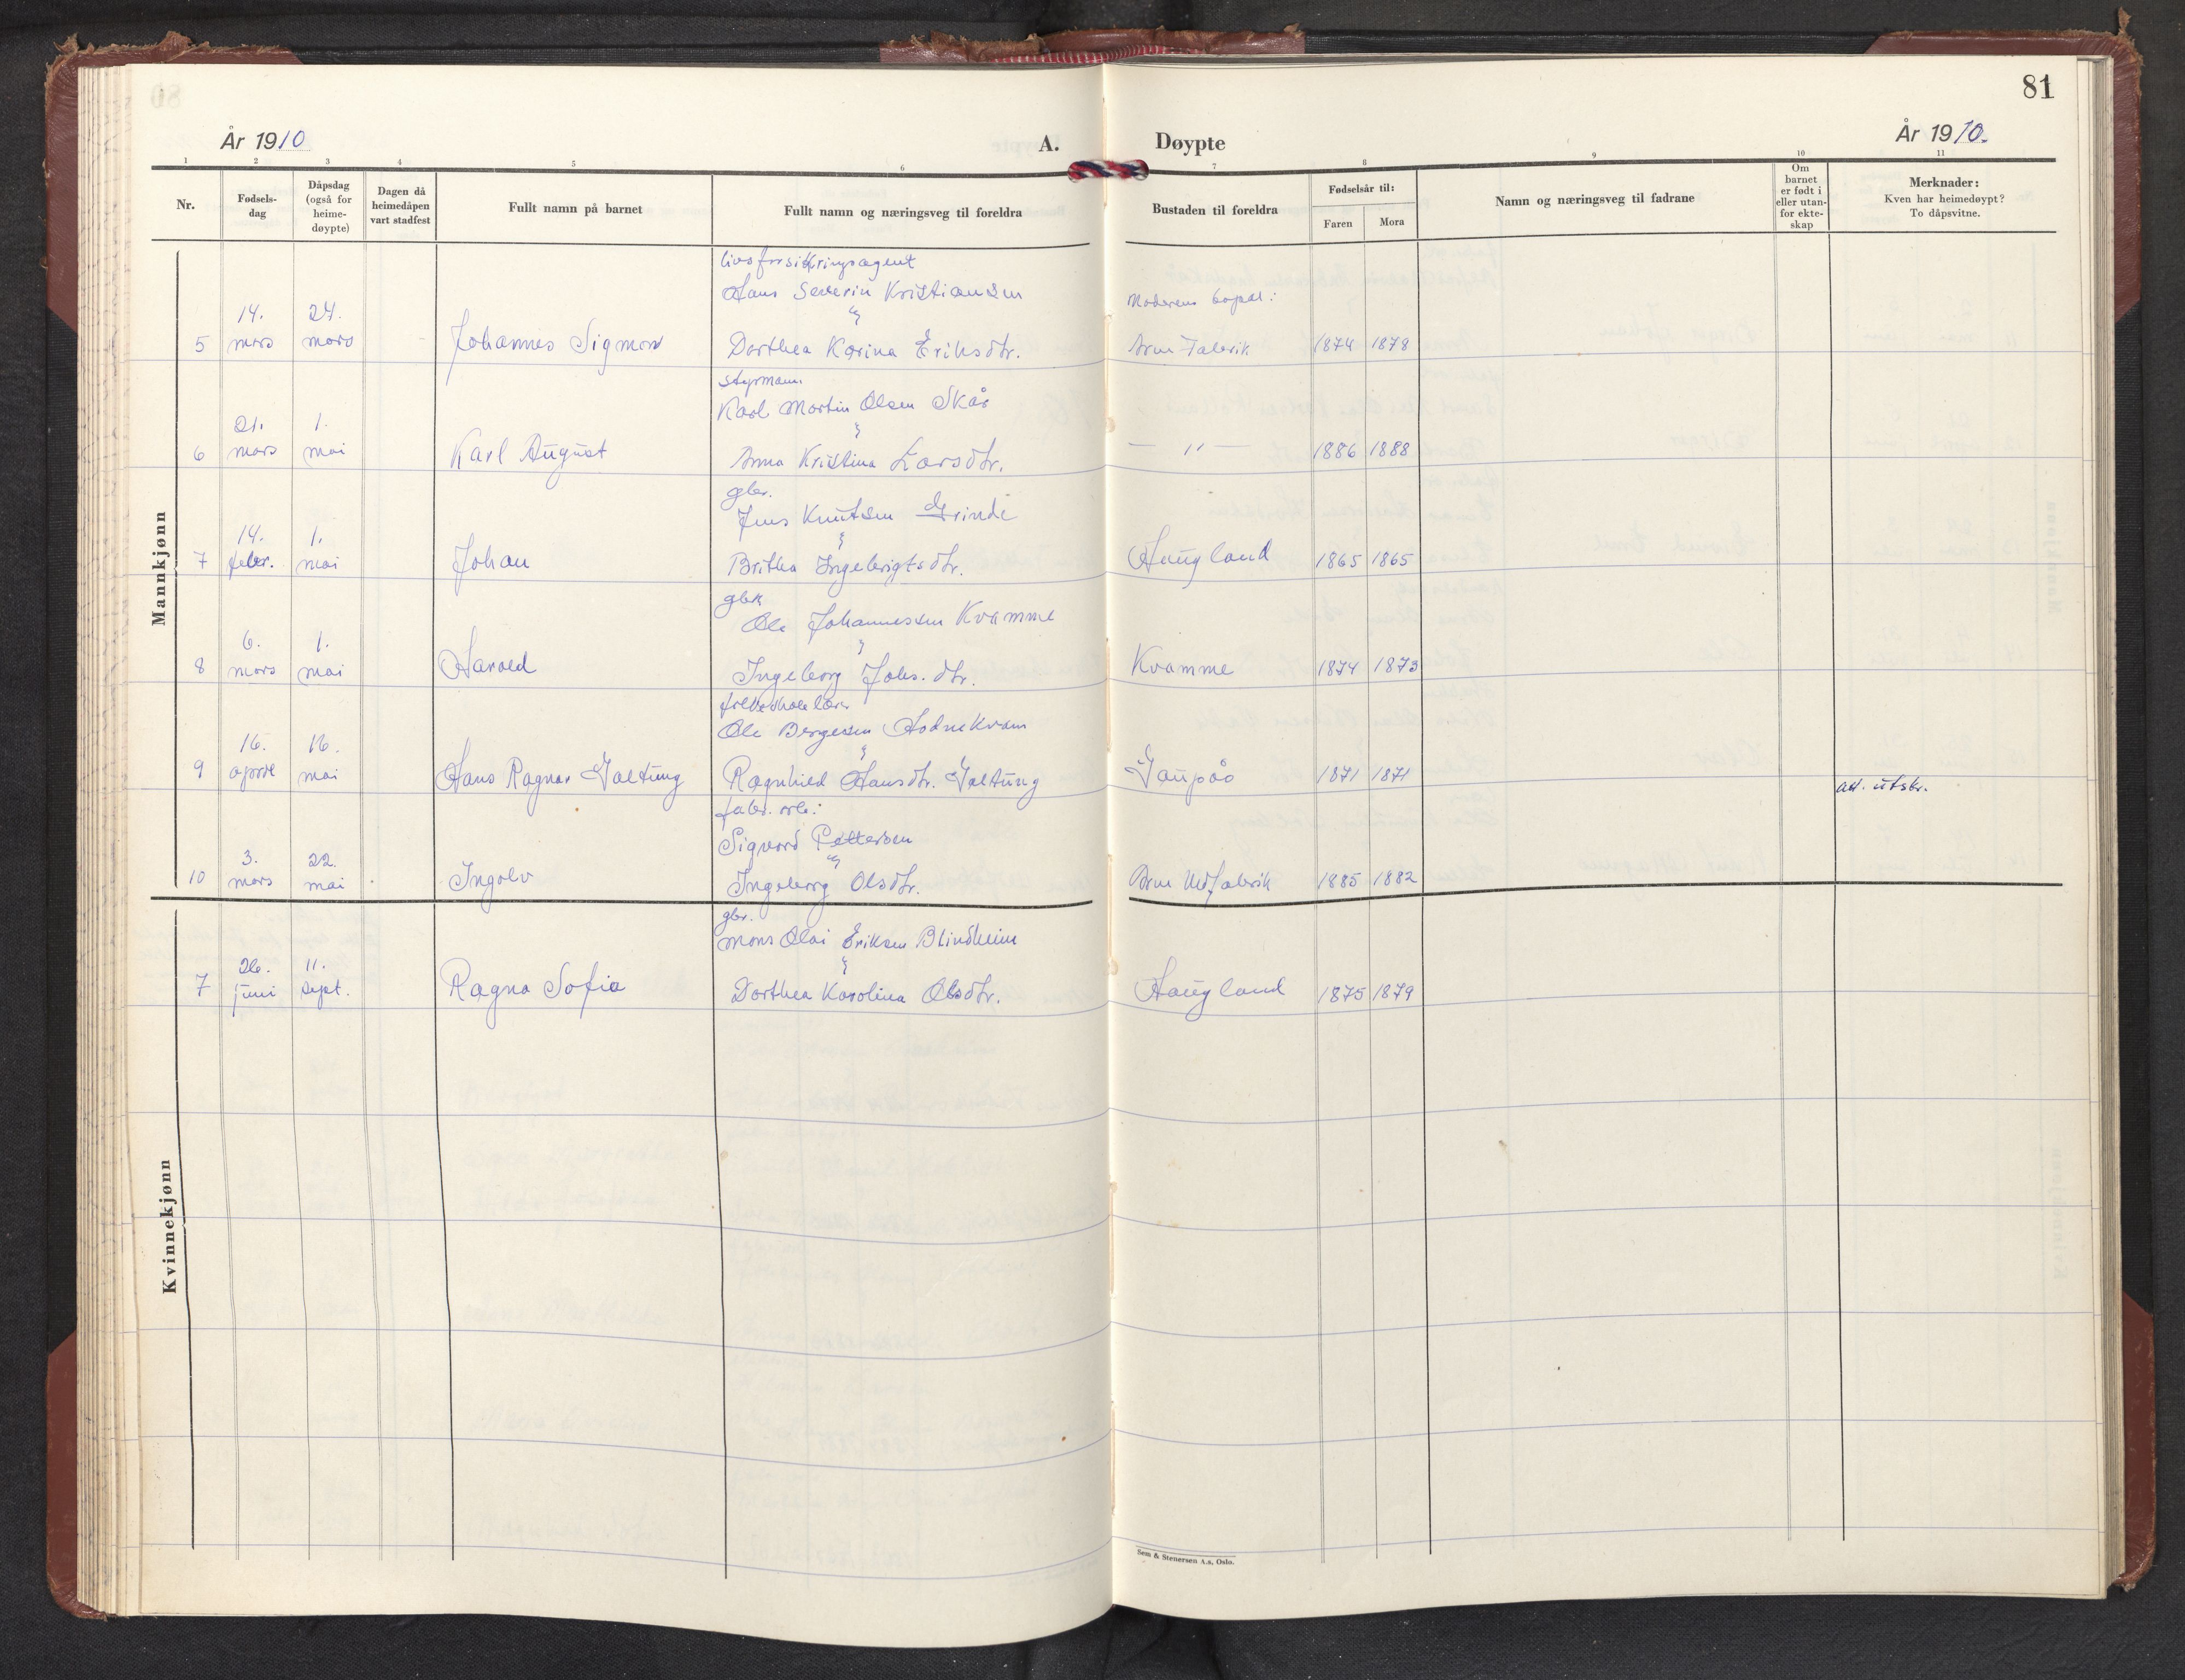 81
År 1910
A.
Døypte
År 1910.
1 2 3 4 5 6 7 8 9 10 11
Nr.
Fødsels-
dag
Dåpsdag
(også for
heime-
døypte)
Dagen då
heimedåpen
vart stadfest
Fullt namn på barnet
Fullt namn og næringsveg til foreldra
Bustaden til foreldra
Fødselsår til:
Faren Mora
Namn og næringsveg til fadrane
Om
barnet
er født i
eller utan-
for ekte-
skap
Merknader:
Kven har heimedøypt?
To dåpsvitne.
Mankjønn
livsforsikringsagent
Hans Severin Kristiansen
Moderens bopæl:
14. 24.
5 mars mars Johannes Sigmon Dorthea Karina Eriksdtr. Arne Fabrik 1874 1878
styrmann
Karl Martin Olsen Skår
21. 1.
6 mars mai Karl August Anna Kristina Larsdtr. — " — 1886 1888
gbr.
Jens Knutsen Grinde
14. 1.
7 febr. mai Johan Britha Ingebrigtsdtr. Haugland 1865 1865
gbr.
Ole Johannessen Kvamme
6. 1.
8 mars mai Harald Ingeborg Johs. dtr. Kvamme 1874 1873
Ole Bergesen Hodnekvam
16. 16.
9 april mai Hans Ragnar Galtung Ragnhild Hansdtr. Galtung Gaupås 1871 1871
att. utskr.
fabr. arb.
Sigvard Pettersen
3. 22.
10 mars mai Ingolv Ingeborg Olsdtr. Arne Uldfabrik 1885 1882
Kvinnekjønn
gbr.
Mons Olai Eriksen Blindheim
26. 11.
7 juni sept. Ragna Sofie Dorthea Karolina Olsdtr. Haugland 1875 1879
Sem & Stenersen A.s, Oslo.